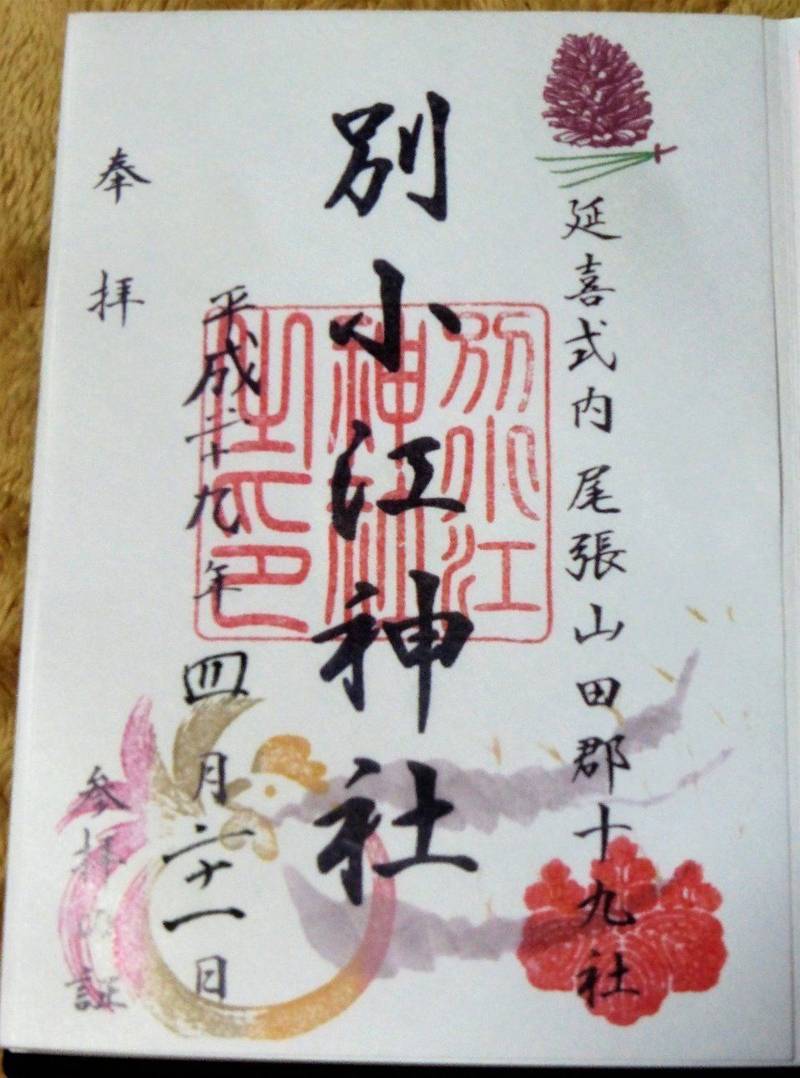 延喜式内 尾張山田郡十九社
別小江神社
別小江神社之印
平成二十九年四月二十一日
奉拝
参拝の証